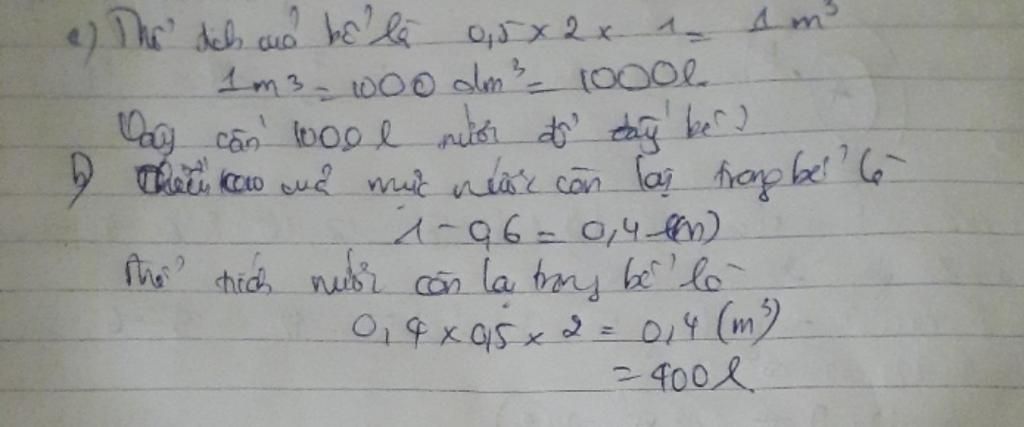 a) Thể tích của bể là 0,5 × 2 × 1 = 1 m³
1m³ = 1000 dm³ = 1000l
Vậy cần 1000l nước để đầy bể
b) Chiều cao của mực nước còn lại trong bể là
1 - 0,6 = 0,4 (m)
Thể tích nước còn lại trong bể là
0,4 × 0,5 × 2 = 0,4 (m³)
= 400l